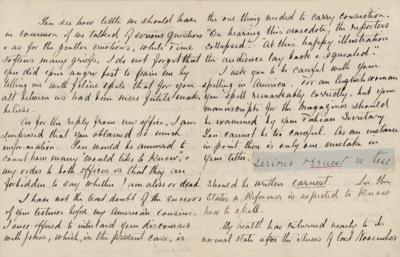 You see how little we should have
in common if we talked of serious questions
& as for the gentler emotions, while Time
softens many griefs, I do not forget that
you did your angry best to pain me by
telling me with feline spite that for you
all between us had been mere futile make
believe.
As for the reply from our office, I am
surprised that you obtained so much
information. You would be amused to
count how many would like to know, &
my order to both offices is that they are
forbidden to say whether I am alive or dead.
I have not the least doubt of the success
of your lectures before my American cousins.
I once offered to interlard your discourses
with jokes, which, in the present case, is
the one thing needed to carry conviction.
On hearing this anecdote, the reporters
collapsed. At this happy illustration
the audience lay back & squealed.
I ask you to be careful with your
spelling in America. For an English woman
you spell remarkably correctly, but your
manuscripts for the Magazines should
be examined by your Tuscan Secretary.
You cannot be too careful. As an instance
in point there is only one mistake in
your letter. Serious ernest
should be written earnest. In the
States a Reformer is expected to know
how to spell.
My health has returned nearly to its
normal state after the illness of last November